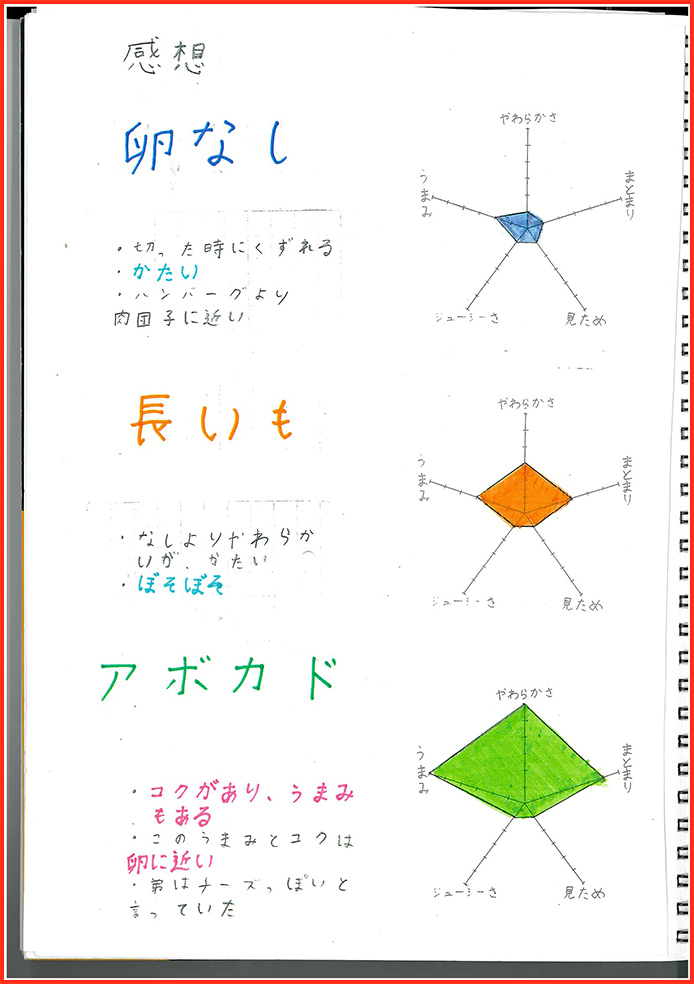 感想
卵なし
・切った時にくずれる
・かたい
・ハンバーグより
肉団子に近い
やわらかさ
まとまり
見ため
ジューシーさ
うまみ
長いも
・なしよりやわらか
いが、かたい
・ぼそぼそ
やわらかさ
まとまり
見ため
ジューシーさ
うまみ
アボカド
・コクがあり、うまみ
もある
・このうまみとコクは
卵に近い
・弟はチーズっぽいと
言っていた
やわらかさ
まとまり
見ため
ジューシーさ
うまみ